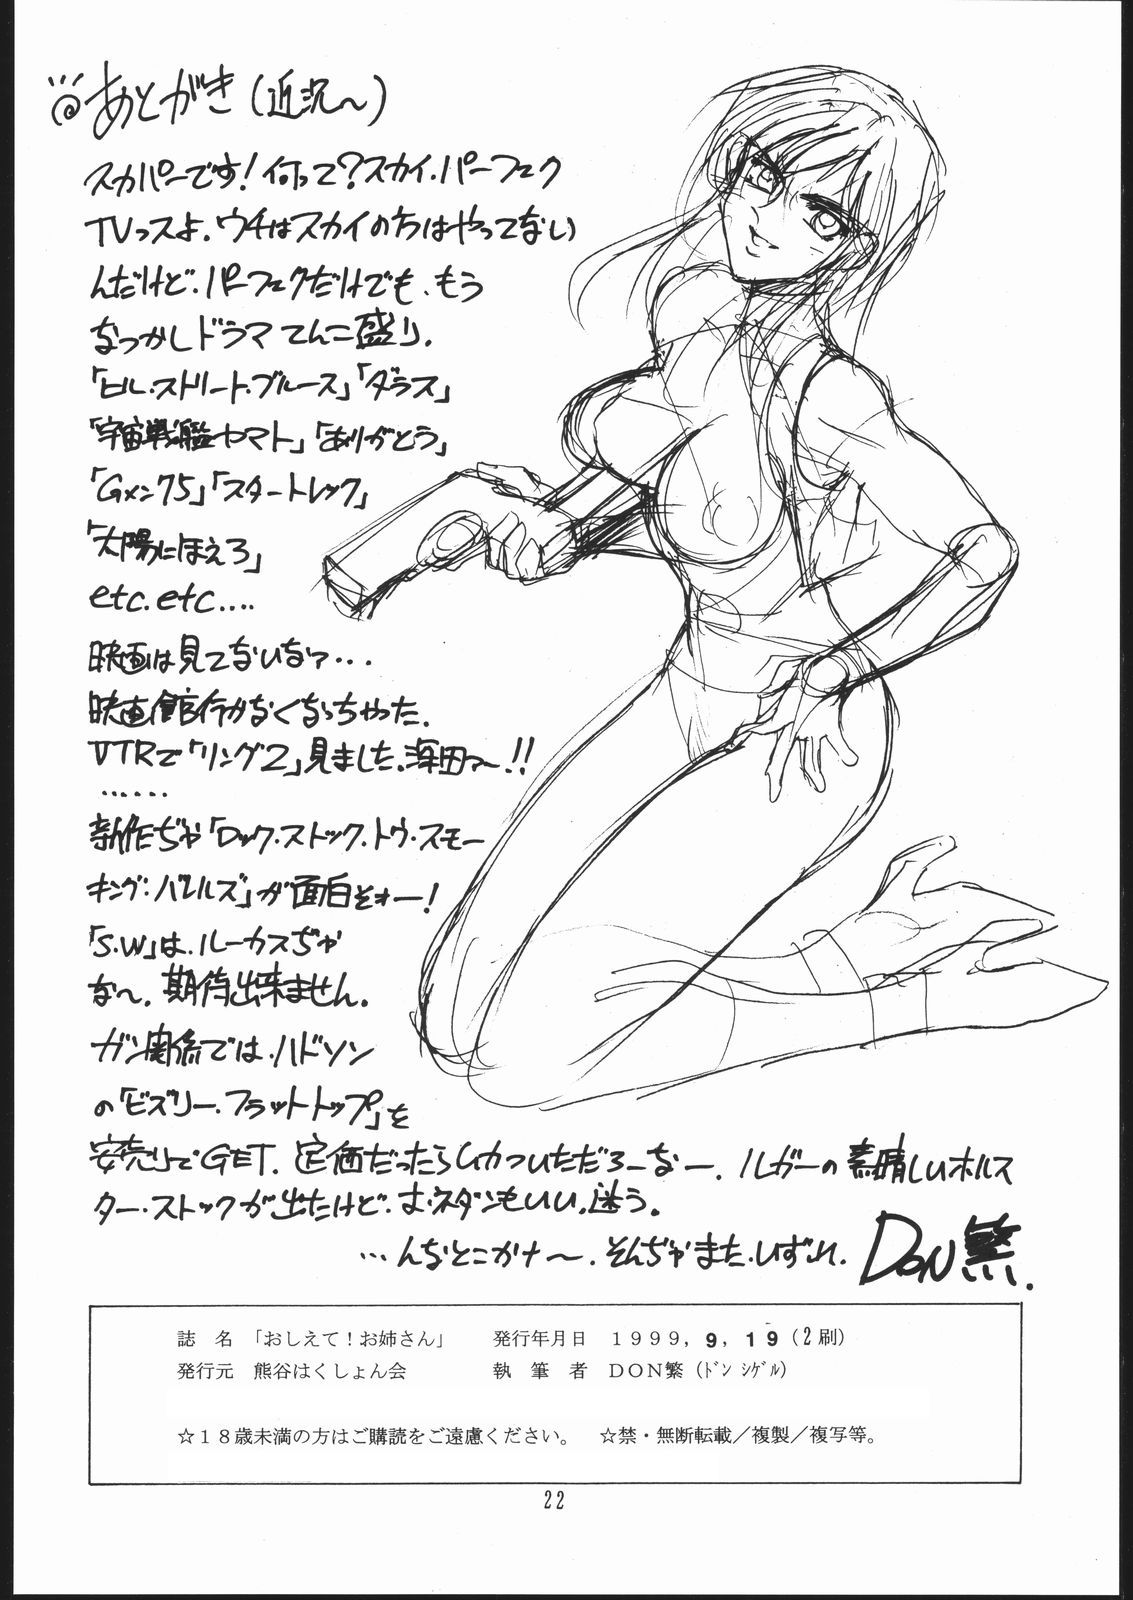 あとがき(近況〜)
スカパーです!何って?スカイ.パーフェク
TVっスよ.ウチはスカイのちはやってない
んだけど.パーフェクだけでも.もう
なつかしドラマてんこ盛り.
「ヒル・ストリート・ブルース」「ダラス」
「宇宙戦艦ヤマト」「ありがとう」
「Gメン75」「スタートレック」
「太陽にほえろ」
etc.etc....
映画は見てないなァ...
映画館行かなくなっちゃった.
VTRで「リング2」見ました.海田ァ〜!!
......
新作ぢゃ「ロック.ストック.トゥ・スモー
キング:バレルズ」が面白そォー!
「S.W」は.ルーカスぢゃ
な〜.期待出来ません.
ガン関係では.ハドソン
の「ビズリー.フラットトップ」を
安売りでGET.定価だったらムカついただろーなー.ルガーの素晴しいホルス
ター・ストックが出たけど.おネダンもいい.迷う。
...んなとこかナ〜.そんぢゃまた.いずれ.
DON繁.
誌 名 「おしえて!お姉さん」 発行年月日 1999,9,19(2刷)
発行元 熊谷はくしょん会 執 筆 者 DON繁(ﾄﾞﾝ ｼｹﾞﾙ)
☆18歳未満の方はご購読をご遠慮ください。 ☆禁・無断転載／複製／複写等。
22